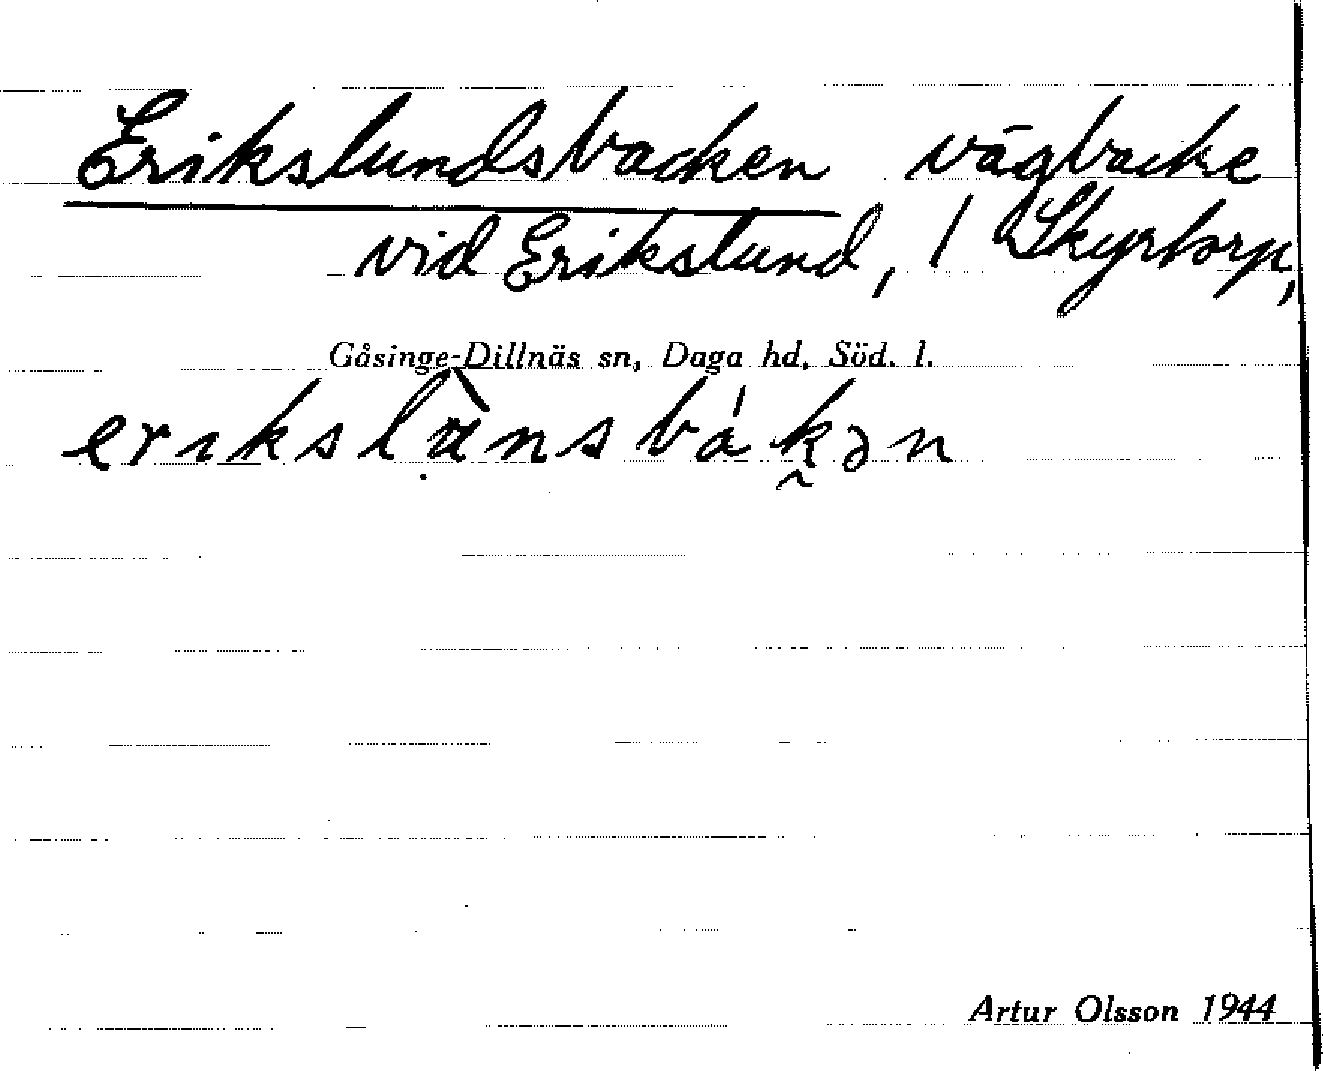 Erikslundsbacken vägbacke
vid Erikslund, l Skyrtorp,
Gåsinge-Dillnäs sn, Daga hd, Söd. l.
Artur Olsson 1944